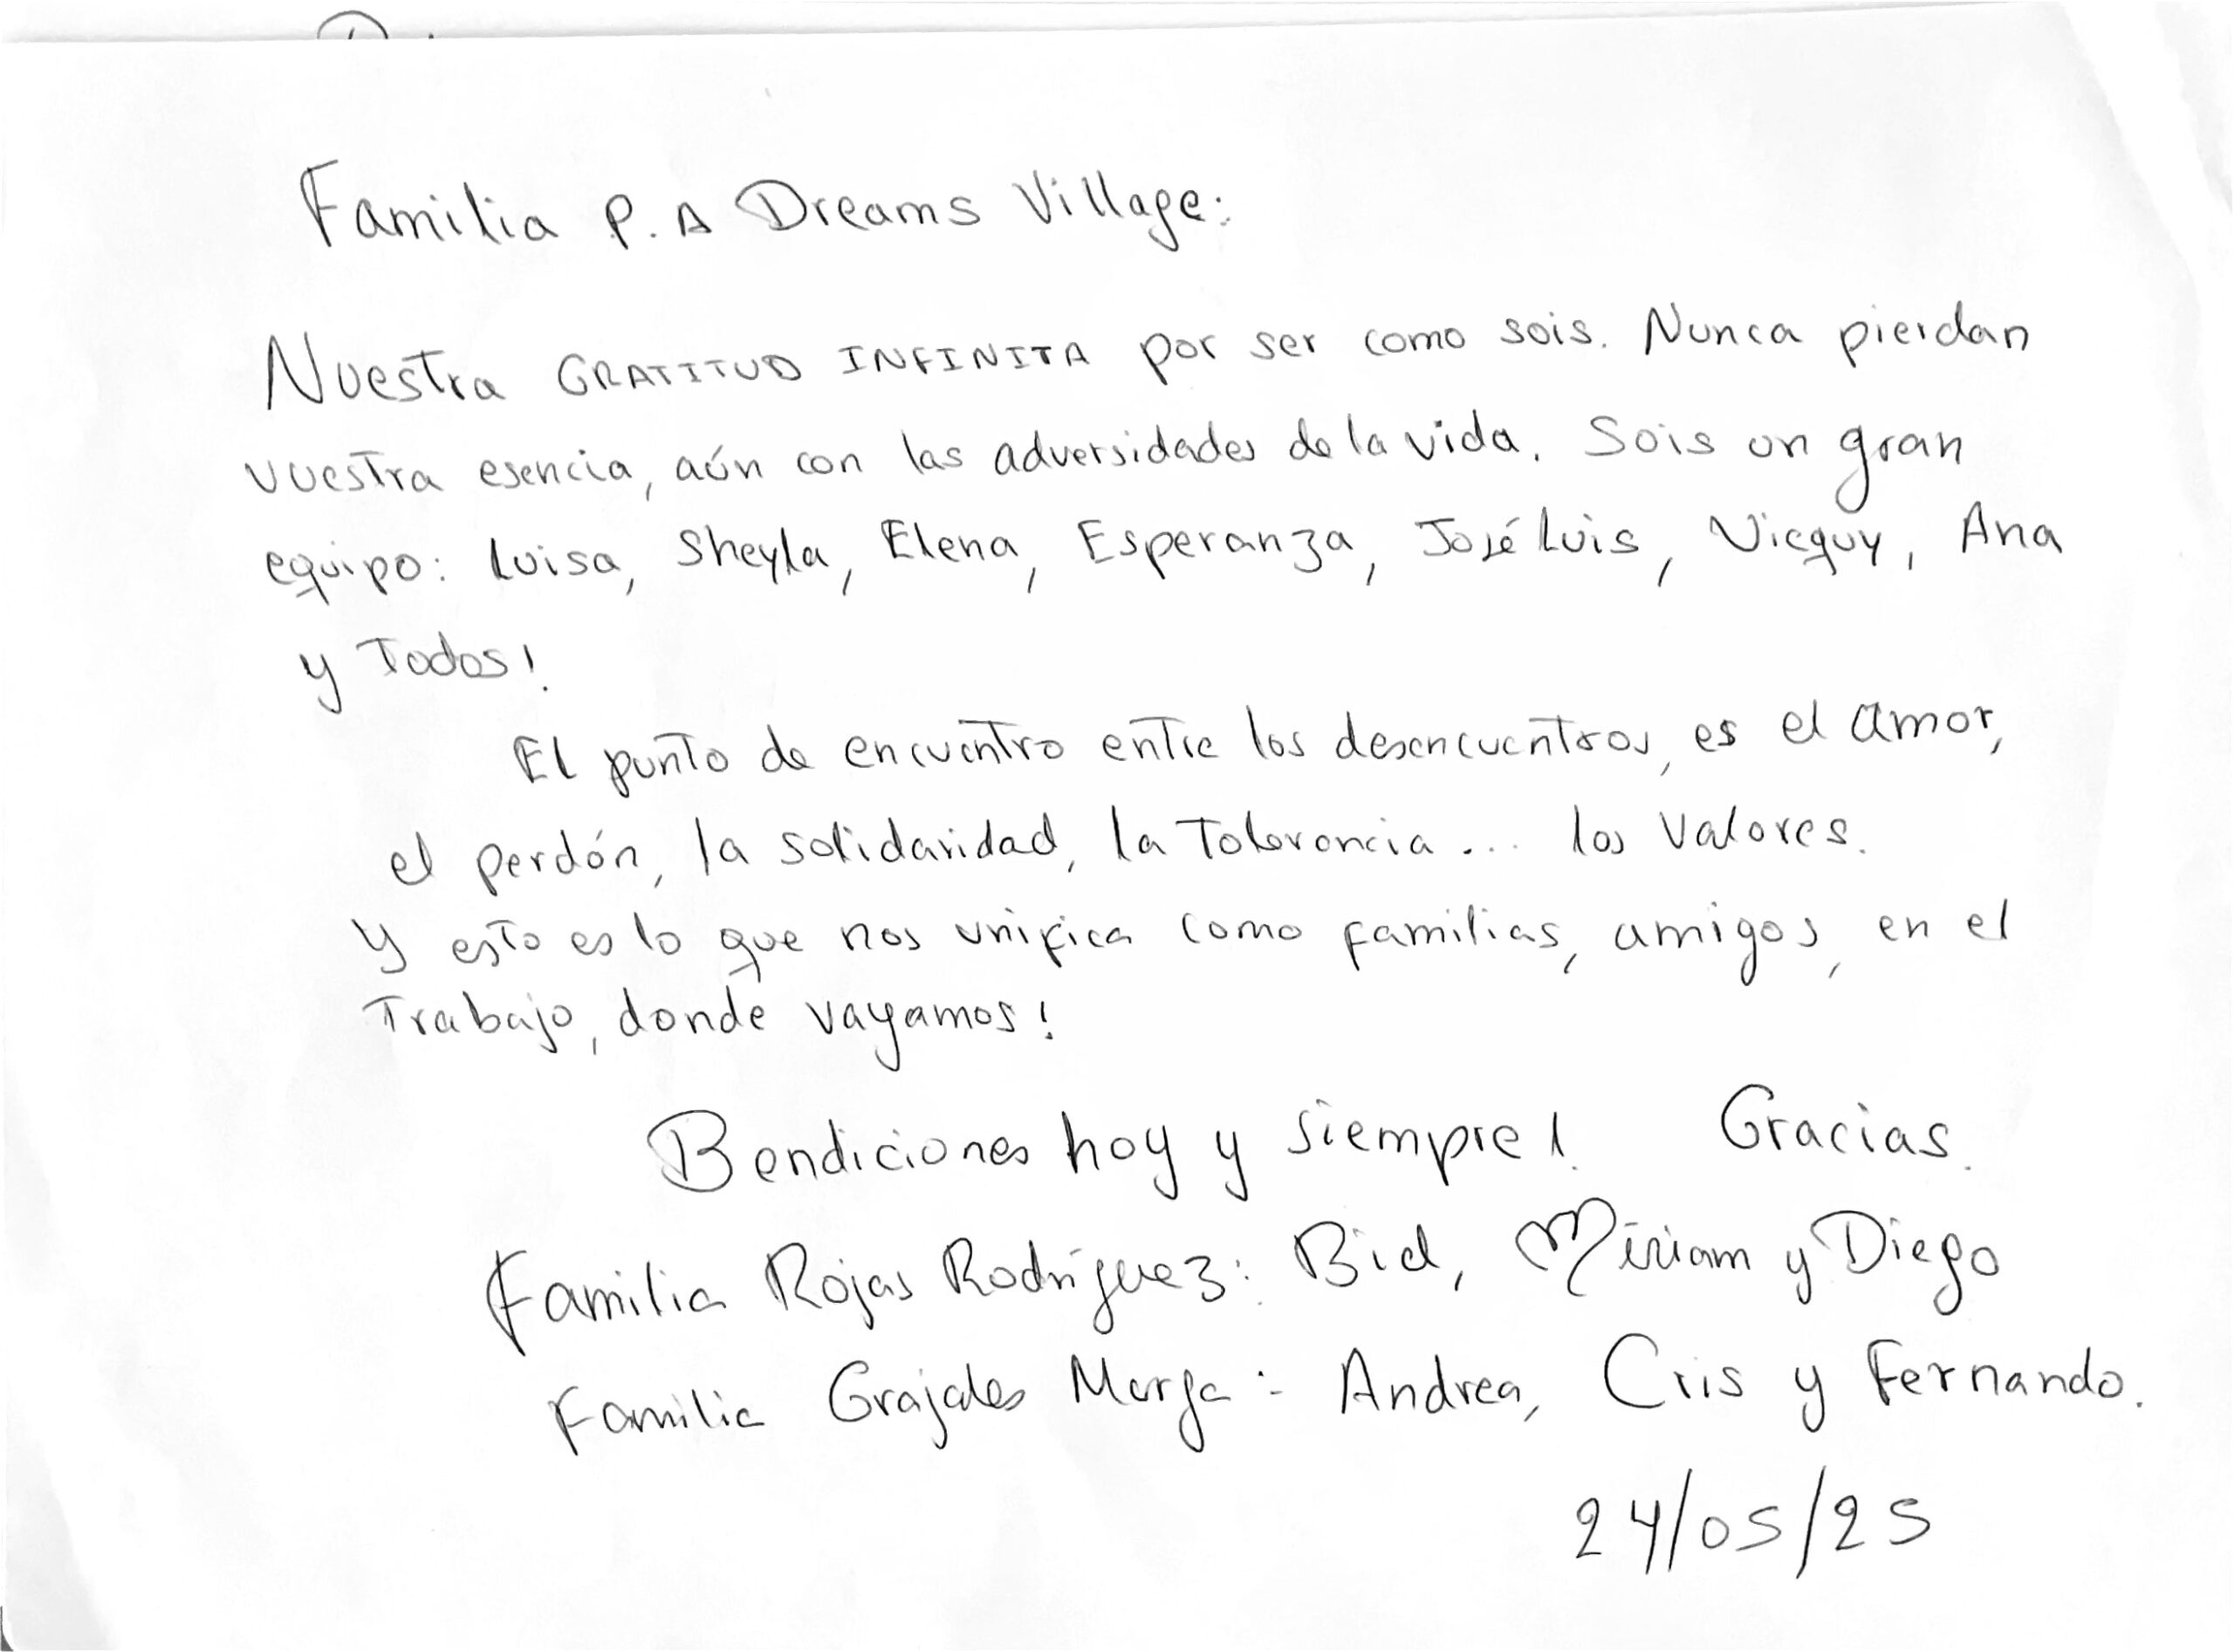 Familia P.A Dreams Village:
Nuestra GRATITUD INFINITA por ser como sois. Nunca pierdan
vuestra esencia, aún con las adversidades de la vida. Sois un gran
equipo: Luisa, Sheyla, Elena, Esperanza, José Luis, Vicquy, Ana
y Todos!
El punto de encuentro entre los desencuentros, es el amor,
el perdón, la solidaridad, la Tolerancia... los valores.
Y esto es lo que nos unifica como familias, amigos, en el
Trabajo, donde vayamos!
Bendiciones hoy y siempre! Gracias.
Familia Rojas Rodríguez: Bid, Miriam y Diego
Familia Grajales Marga: Andrea, Cris y Fernando.
24/05/25